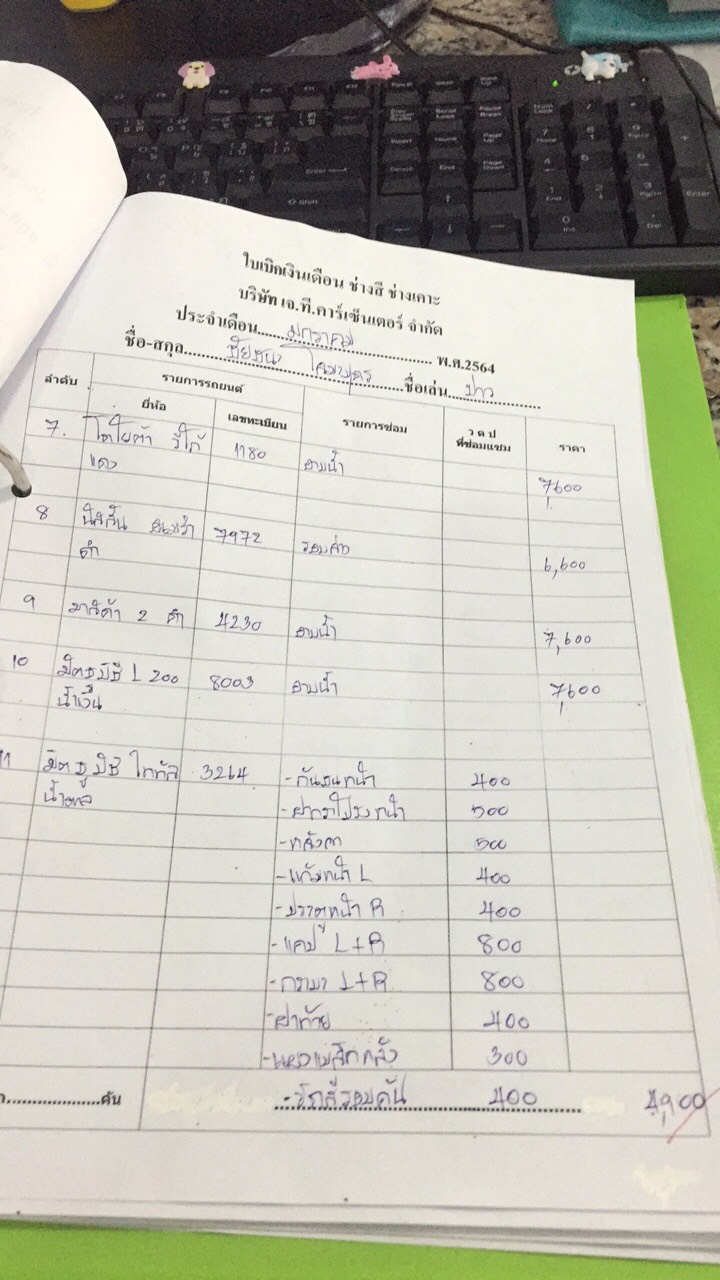 ใบเบิกเงินเดือน ช่างสี ช่างเคาะ
บริษัท เจ.ที.คาร์เซ็นเตอร์ จำกัด
ประจำเดือน....มกราคม.... พ.ศ.2564
ชื่อ-สกุล.... ชื่อเล่น....
ลำดับ รายการรถยนต์ รายการซ่อม ว ด ป ที่ซ่อมแซม ราคา
ยี่ห้อ เลขทะเบียน
7. โตโยต้า วีโก้ 1180 อาบน้ำ
แดง 7600
8 นิสสัน 7972 รอบคัน
ดำ 6,600
9 มาสด้า 2 ดำ 4230 อาบน้ำ 7,600
10 มิตซูบิชิ L 200 8003 อาบน้ำ 7,600
น้ำเงิน
11 มิตซูบิชิ 3264 -กันชนหน้า 400
น้ำตาล -ฝากระโปรงหน้า 500
-หลังคา 500
-แก้มหน้า L 400
-ประตูหน้า R 400
-แคป L+R 800
L+R 800
-ฝาท้าย 400
300
....คัน -สีรอบคัน 400 4,900